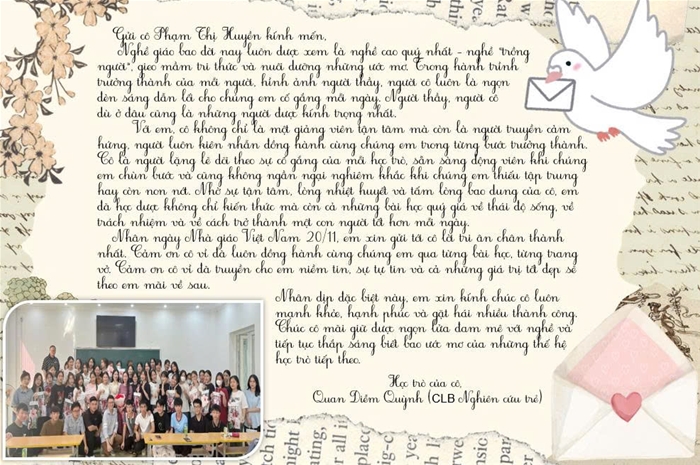 Gửi cô Phạm Thị Huyền kính mến,
Nghề giáo bao đời nay luôn được xem là nghề cao quý nhất - nghề "trồng
người", gieo mầm tri thức và nuôi dưỡng những ước mơ. Trong hành trình
trưởng thành của mỗi người, hình ảnh người thầy, người cô luôn là ngọn
đèn sáng dẫn lối cho chúng em cố gắng mỗi ngày. Người thầy, người cô
dù ở đâu cũng là những người được kính trọng nhất.
Với em, cô không chỉ là một giảng viên tận tâm mà còn là người truyền cảm
hứng, người luôn kiên nhẫn đồng hành cùng chúng em trong từng bước trưởng thành.
Cô là người lặng lẽ dõi theo sự cố gắng của mỗi học trò, sẵn sàng động viên khi chúng
em chùn bước và cũng không ngần ngại nghiêm khắc khi chúng em thiếu tập trung
hay còn non nớt. Nhờ sự tận tâm, lòng nhiệt huyết và tấm lòng bao dung của cô, em
đã học được không chỉ kiến thức mà còn cả những bài học quý giá về thái độ sống, về
trách nhiệm và về cách trở thành một con người tốt hơn mỗi ngày.
Nhân ngày Nhà giáo Việt Nam 20/11, em xin gửi tới cô lời tri ân chân thành
nhất. Cảm ơn cô vì đã luôn đồng hành cùng chúng em qua từng bài học, từng trang
vở. Cảm ơn cô vì đã truyền cho em niềm tin, sự tự tin và cả những giá trị tốt đẹp sẽ
theo em mãi về sau.
Nhân dịp đặc biệt này, em xin kính chúc cô luôn
mạnh khỏe, hạnh phúc và gặt hái nhiều thành công.
Chúc cô mãi giữ được ngọn lửa đam mê với nghề và
tiếp tục thắp sáng biết bao ước mơ của những thế hệ
học trò tiếp theo.
Học trò của cô,
Quan Diễm Quỳnh (CLB Nghiên cứu trẻ)